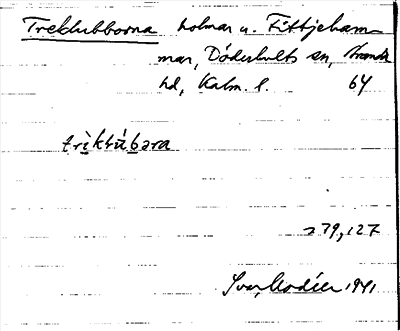 Treklubborna holmar u. Fittjeham-
mar, Döderhults sn, Stranda
hd, Kalm. l. 64
trìkḷúbɔra
279,127
Ivar Modéer 1941